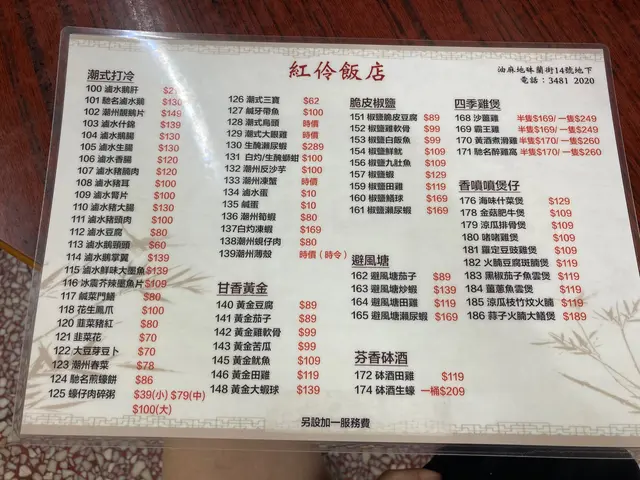 紅伶飯店
油麻地咪蘭街14號地下
電話：3481 2020
潮式打冷
100 滷水鵝肝
101 馳名滷水鵝 $130
102 潮州靚鵝片 $149
103 滷水什錦 $139
104 滷水鵝腸 $130
105 滷水生腸 $130
106 滷水香腸 $120
107 滷水豬腩肉 $120
108 滷水豬耳 $100
109 滷水腎片 $100
110 滷水豬大腸 $130
111 滷水豬頭肉 $100
112 滷水豆腐 $80
113 滷水鵝頭頸 $60
114 滷水鵝掌翼 $139
115 滷水鮮味大墨魚 $139
116 冰震芥辣墨魚片 $109
117 鹹菜門鱔 $80
118 花生鳳爪 $100
120 韮菜豬紅 $80
121 韮菜花 $70
122 大豆芽豆卜 $70
123 潮州春菜 $78
124 馳名煎蠔餅 $86
125 蠔仔肉碎粥 $39(小) $79(中)
$100(大)
126 潮式三寶 $62
127 鹹牙帶魚 $100
128 潮式烏頭 時價
129 潮式大眼雞 時價
130 生醃瀨尿蝦 $289
131 白灼/生醃螄蚶 $100
132 潮州反沙芋 $100
133 潮州凍蟹 時價
134 滷水蛋 $10
135 鹹蛋 $10
136 潮州筍蝦 $80
137白灼凍蝦 $169
138潮州蜆仔肉 $80
139潮州薄殼 時價（時令）
甘香黃金
140 黃金豆腐 $89
141 黃金茄子 $89
142 黃金雞軟骨 $99
143 黃金苦瓜 $99
145 黃金魷魚 $109
146 黃金田雞 $119
148 黃金大蝦球 $139
脆皮椒鹽
151 椒鹽脆皮豆腐 $89
152 椒鹽雞軟骨 $99
153 椒鹽白飯魚 $99
154 椒鹽鮮魷 $109
156 椒鹽九肚魚 $109
157 椒鹽蝦 $129
159 椒鹽田雞 $119
160 椒鹽鱔球 $169
161 椒鹽瀨尿蝦 $169
避風塘
162 避風塘茄子 $89
163 避風塘炒蝦 $139
164 避風塘田雞 $119
165 避風塘瀨尿蝦 $169
芬香砵酒
172 砵酒田雞 $119
174 砵酒生蠔 一桶$209
四季雞煲
168 沙薑雞 半隻$169/ 一隻$249
169 霸王雞 半隻$169/ 一隻$249
170 黃酒煮滑雞 半隻$170/ 一隻$260
171 馳名醉雞窩 半隻$170/ 一隻$260
香噴噴煲仔
176 海味什菜煲 $129
178 金菇肥牛煲 $109
179 涼瓜排骨煲 $109
180 啫啫雞煲 $109
181 羅定豆豉雞煲 $109
182 火腩豆腐斑腩煲 $119
183 黑椒茄子魚雲煲 $119
184 薑蔥魚雲煲 $119
185 涼瓜枝竹炆火腩 $119
186 蒜子火腩大鱔煲 $189
另設加一服務費